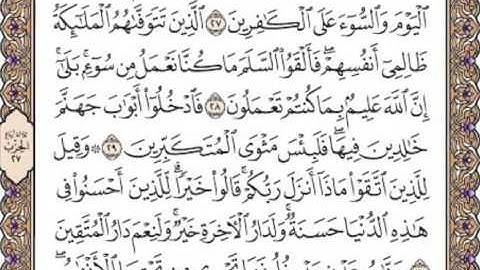 ٱلْيَوْمَ وَٱلسُّوٓءَ عَلَى ٱلْكَٰفِرِينَ ۝٢٧ ٱلَّذِينَ تَتَوَفَّىٰهُمُ ٱلْمَلَٰٓئِكَةُ
ظَالِمِىٓ أَنفُسِهِمْ ۖ فَأَلْقَوُا۟ ٱلسَّلَمَ مَا كُنَّا نَعْمَلُ مِن سُوٓءٍۭ ۚ بَلَىٰٓ
إِنَّ ٱللَّهَ عَلِيمٌۢ بِمَا كُنتُمْ تَعْمَلُونَ ۝٢٨ فَٱدْخُلُوٓا۟ أَبْوَٰبَ جَهَنَّمَ
خَٰلِدِينَ فِيهَا ۖ فَلَبِئْسَ مَثْوَى ٱلْمُتَكَبِّرِينَ ۝٢٩ ۞ وَقِيلَ
لِلَّذِينَ ٱتَّقَوْا۟ مَاذَآ أَنزَلَ رَبُّكُمْ ۚ قَالُوا۟ خَيْرًا ۗ لِّلَّذِينَ أَحْسَنُوا۟ فِى
هَٰذِهِ ٱلدُّنْيَا حَسَنَةٌ ۚ وَلَدَارُ ٱلْءَاخِرَةِ خَيْرٌ ۚ وَلَنِعْمَ دَارُ ٱلْمُتَّقِينَ
الحزب
٢٧